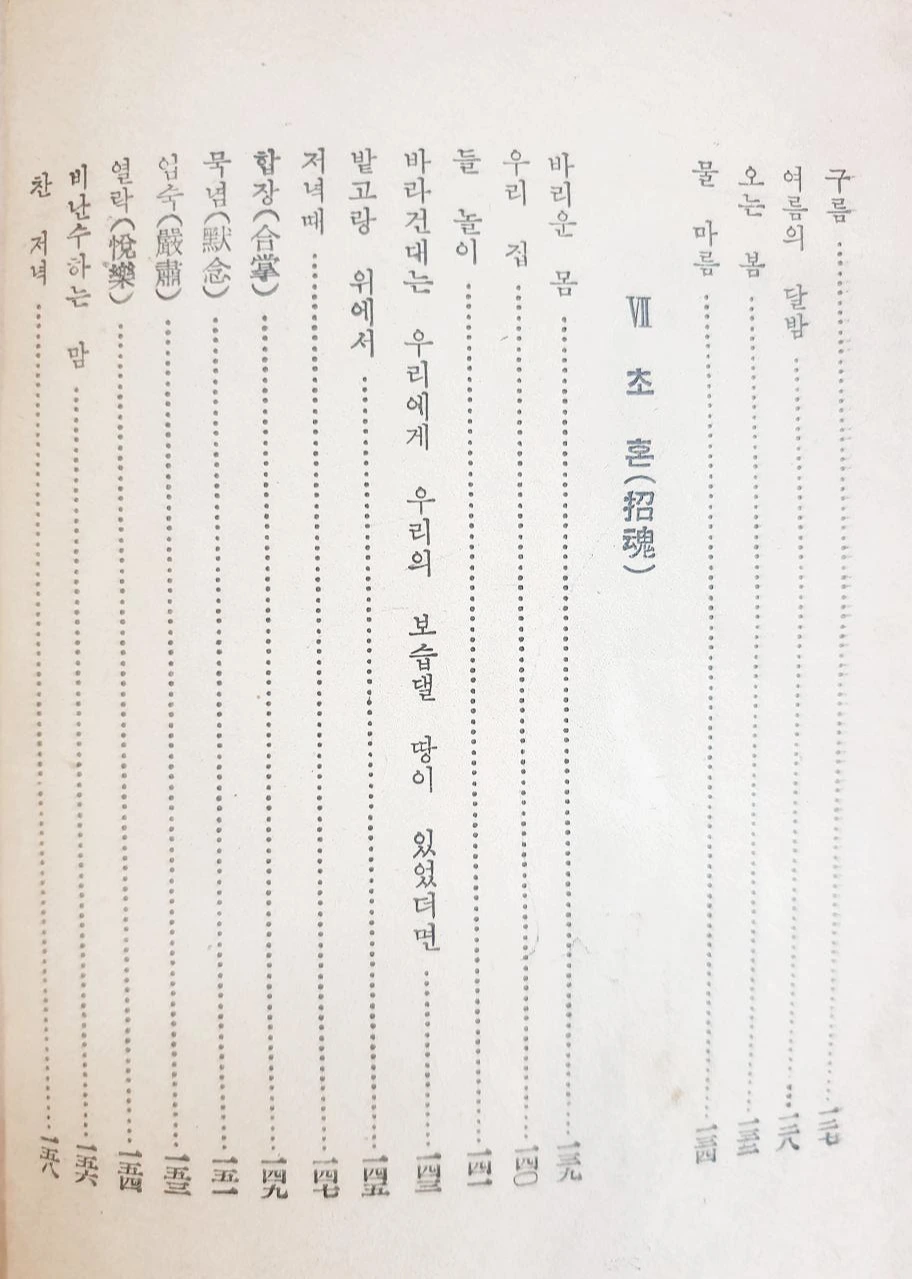 구름……一二七
여름의 달밤……一二八
오는 봄……一三二
물 마름……一三四
Ⅶ 초 혼(招魂)
바리운 몸……一三九
우리 집……一四〇
들 놀이……一四一
바라건대는 우리에게 우리의 보습댈 땅이 있었더면……一四三
밭고랑 위에서……一四五
저녁때……一四七
합장(合掌)……一四九
묵념(默念)……一五一
엄숙(嚴肅)……一五三
열락(悅樂)……一五四
비난수하는 맘……一五六
찬 저녁……一五八